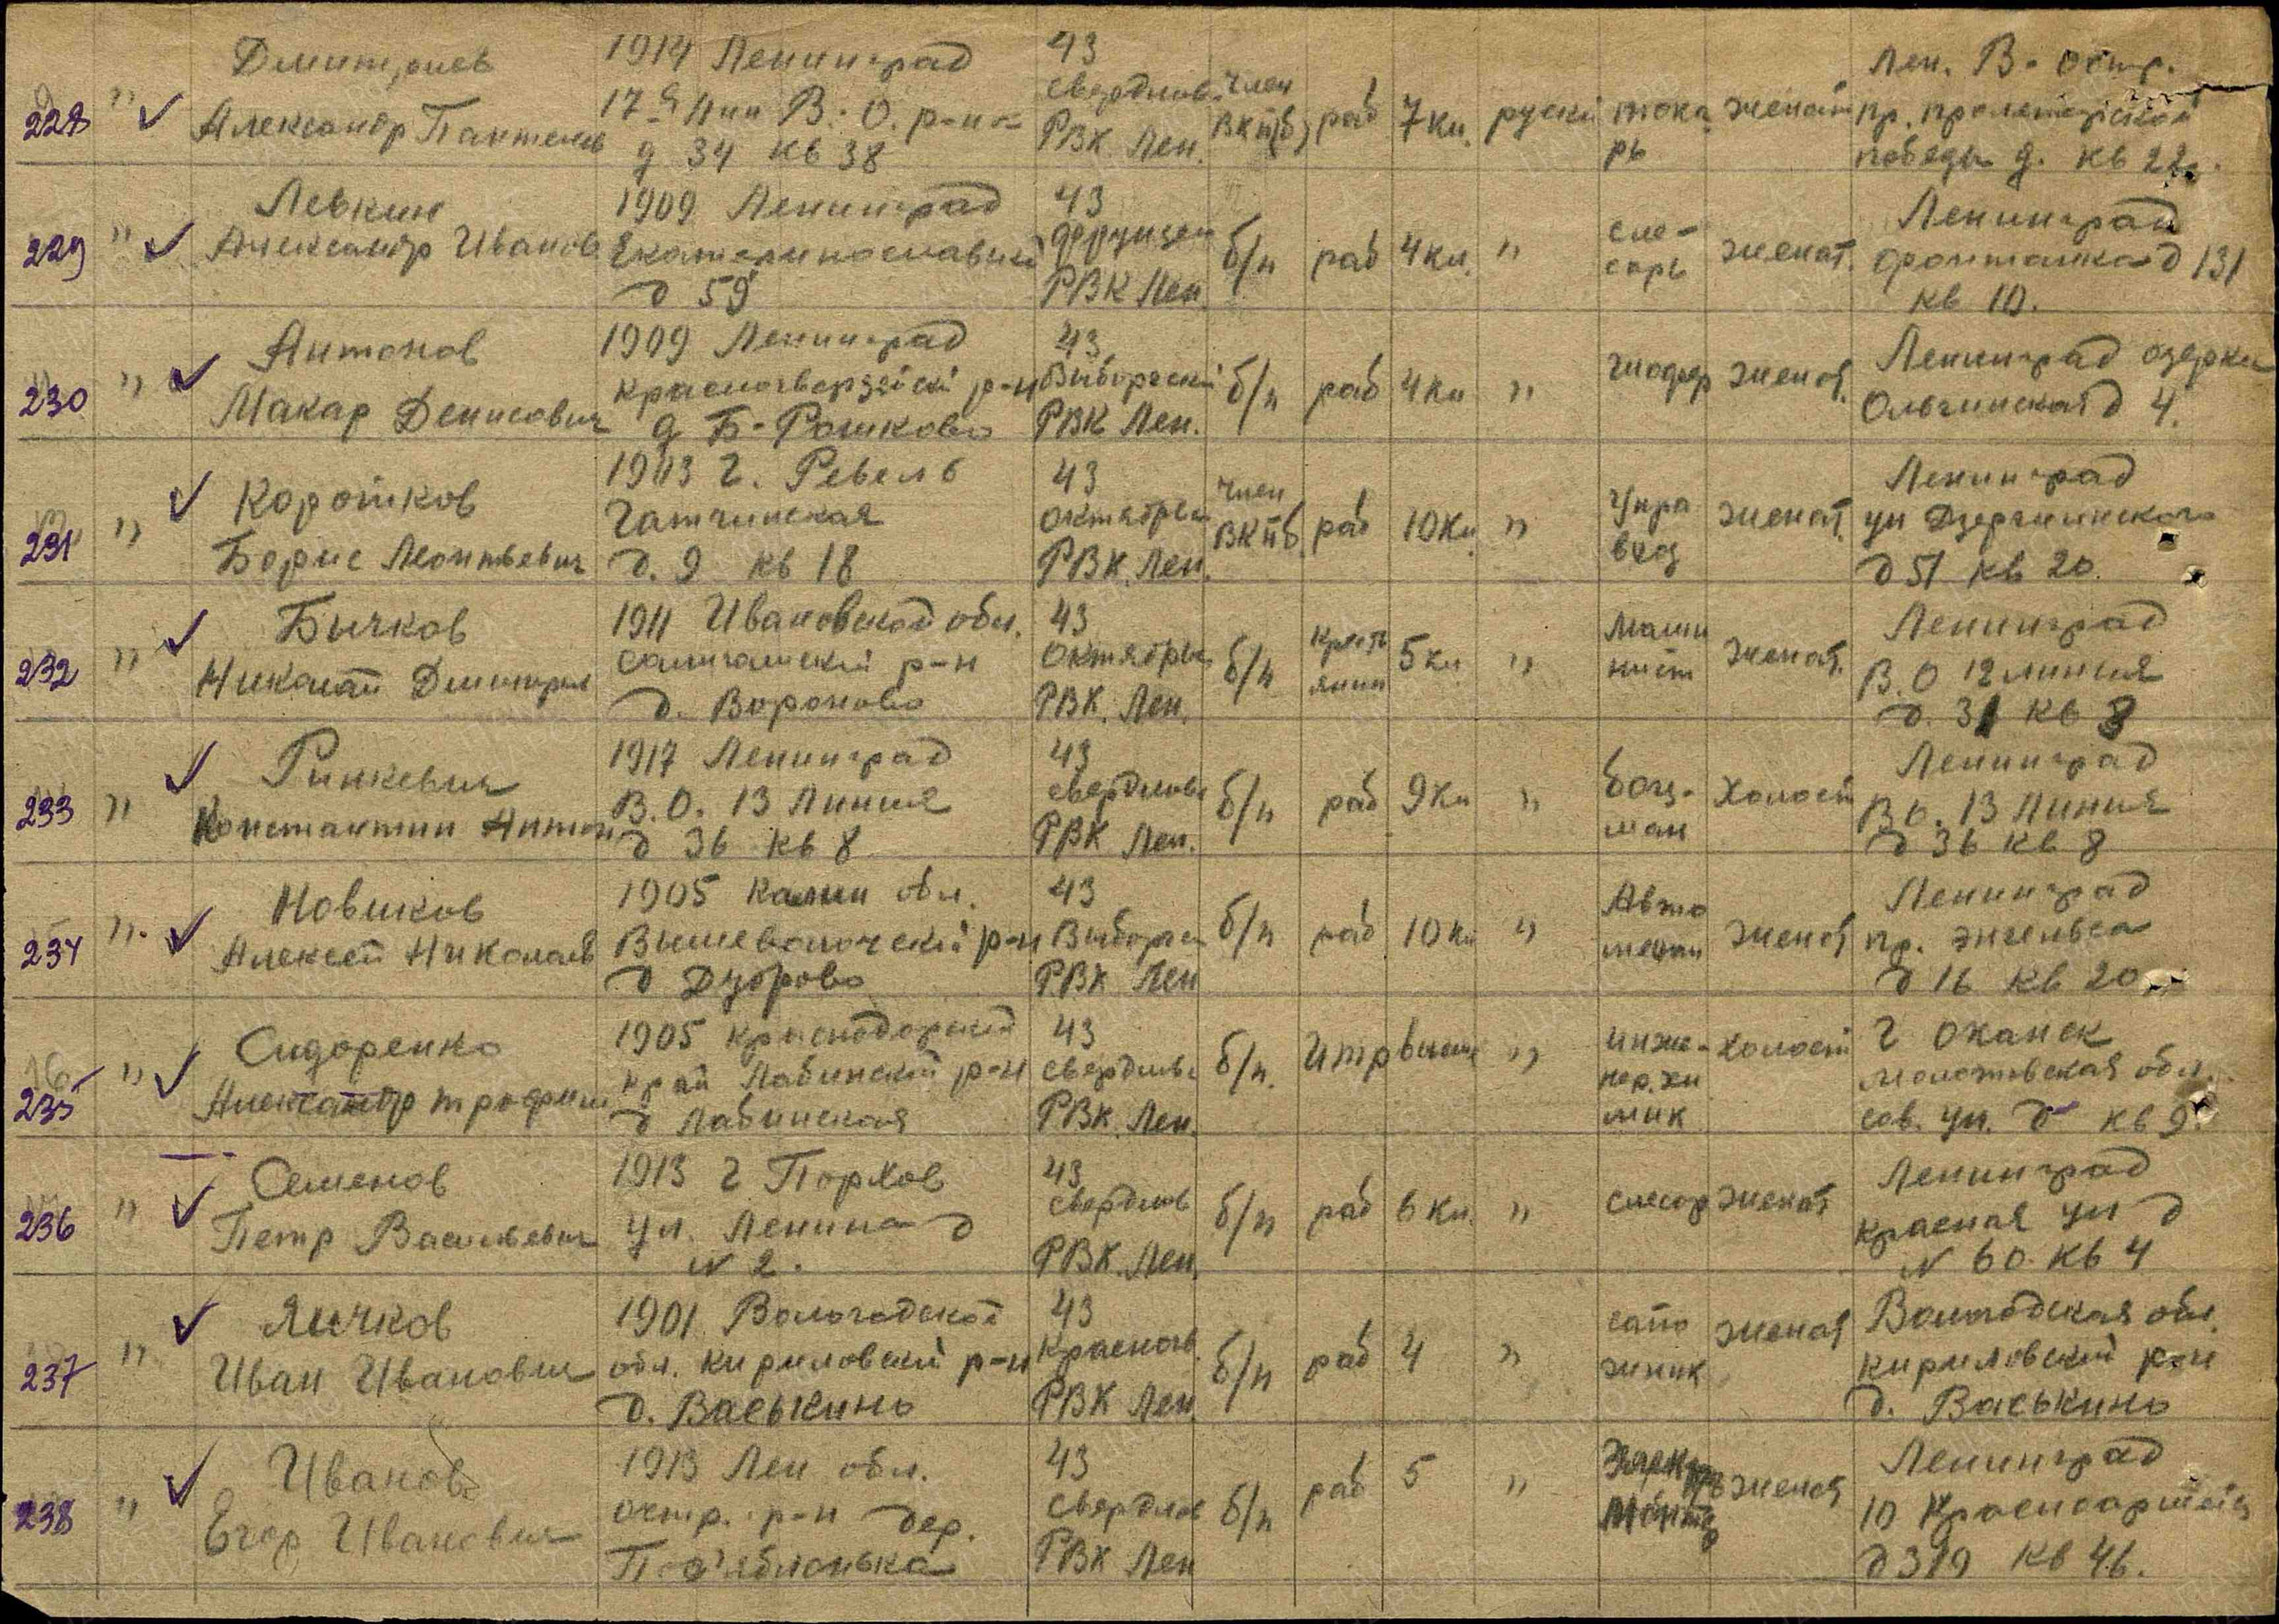 228 " ✓ Дмитриев Александр Пантелев 1914 Ленинград 17-я Лин В.О. р-н д 34 кв 38 43 свердлов. РВК Лен. член ВКП(б) раб 7кл. руски токарь женат Лен. В-остр. пр. пролетарской победы д. кв 22
229 " ✓ Левкин Александр Иванов 1909 Ленинград Екатеринославский д 59 43 фрунзен РВК Лен. б/п раб 4кл. " слесарь женат. Ленинград фонтанка д 131 кв 10.
230 " ✓ Антонов Макар Денисович 1909 Ленинград красногвардейскі р-н д Б-Рошково 43 Выборгский РВК Лен. б/п раб 4кл " шофер женат. Ленинград озерки Ольгинская д 4.
231 " ✓ Коротков Борис Леонтьевич 1903 г. Ревель Гатчинская д. 9 кв 18 43 октябрьс РВК. Лен. член ВКПб. раб 10кл. " управхоз женат. Ленинград ул Дзержинского д 51 кв 20.
232 " ✓ Бычков Николай Дмитриев 1911 Ивановской обл. р-н д. Вороново 43 Октябрьс РВК. Лен. б/п крестьянин 5кл " машинист женат. Ленинград В.О 12 линия д. 31 кв 8
233 " ✓ Ринкевич Константин Антон 1917 Ленинград В.О. 13 Линия д 36 кв 8 43 свердловс РВК Лен. б/п раб 9кл " боцман холост Ленинград В О. 13 Линия д 36 кв 8
234 ". ✓ Новиков Алексей Николаев 1905 Калин обл. Вышеволочский р-н д Дуброво 43 Выборгск РВК Лен б/п раб 10кл " Автомехан женат Ленинград пр. энгельса д 16 кв 20
235 " ✓ Сидоренко Александр трофим 1905 краснодарский край Лабинский р-н д Лабинская 43 свердловс РВК. Лен. б/п. Итр высш " инженер.химик холост г Оханск молотовская обл. сов. ул. д- кв 9.
236 " ✓ Семенов Петр Васильевич 1913 г Порхов ул. Ленина д N 2. 43 свердлов РВК. Лен. б/п раб 6 кл. " слесар женат Ленинград красная ул д N 60. кв 4
237 " ✓ Яичков Иван Иванович 1901 Вологодской обл. кириловский р-н д. Васькино 43 Красногв. РВК Лен б/п раб 4 " сапожник женат Вологодская обл. кириловский р-н д. Васькино
238 " ✓ Иванов Егор Иванович 1913 Лен обл. остр. р-н дер. Под'яблонька 43 свердлов РВК Лен б/п раб 5 " женат Ленинград 10 Красноармейс кв 46.